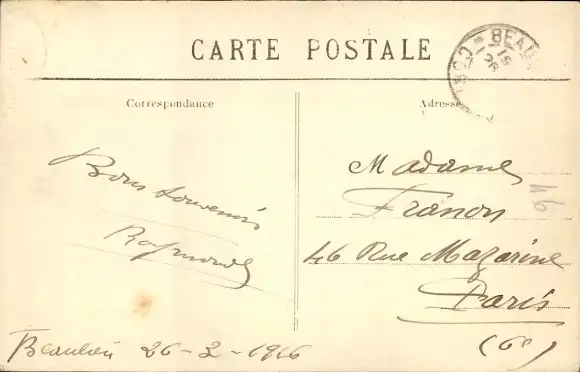 CARTE POSTALE
BEAU
Correspondance
Adresse
Bons souvenirs
Raymonde
Madame
Franon
46 Rue Mazarine
Paris
(6e)
16
Beaulieu 26-3-1916